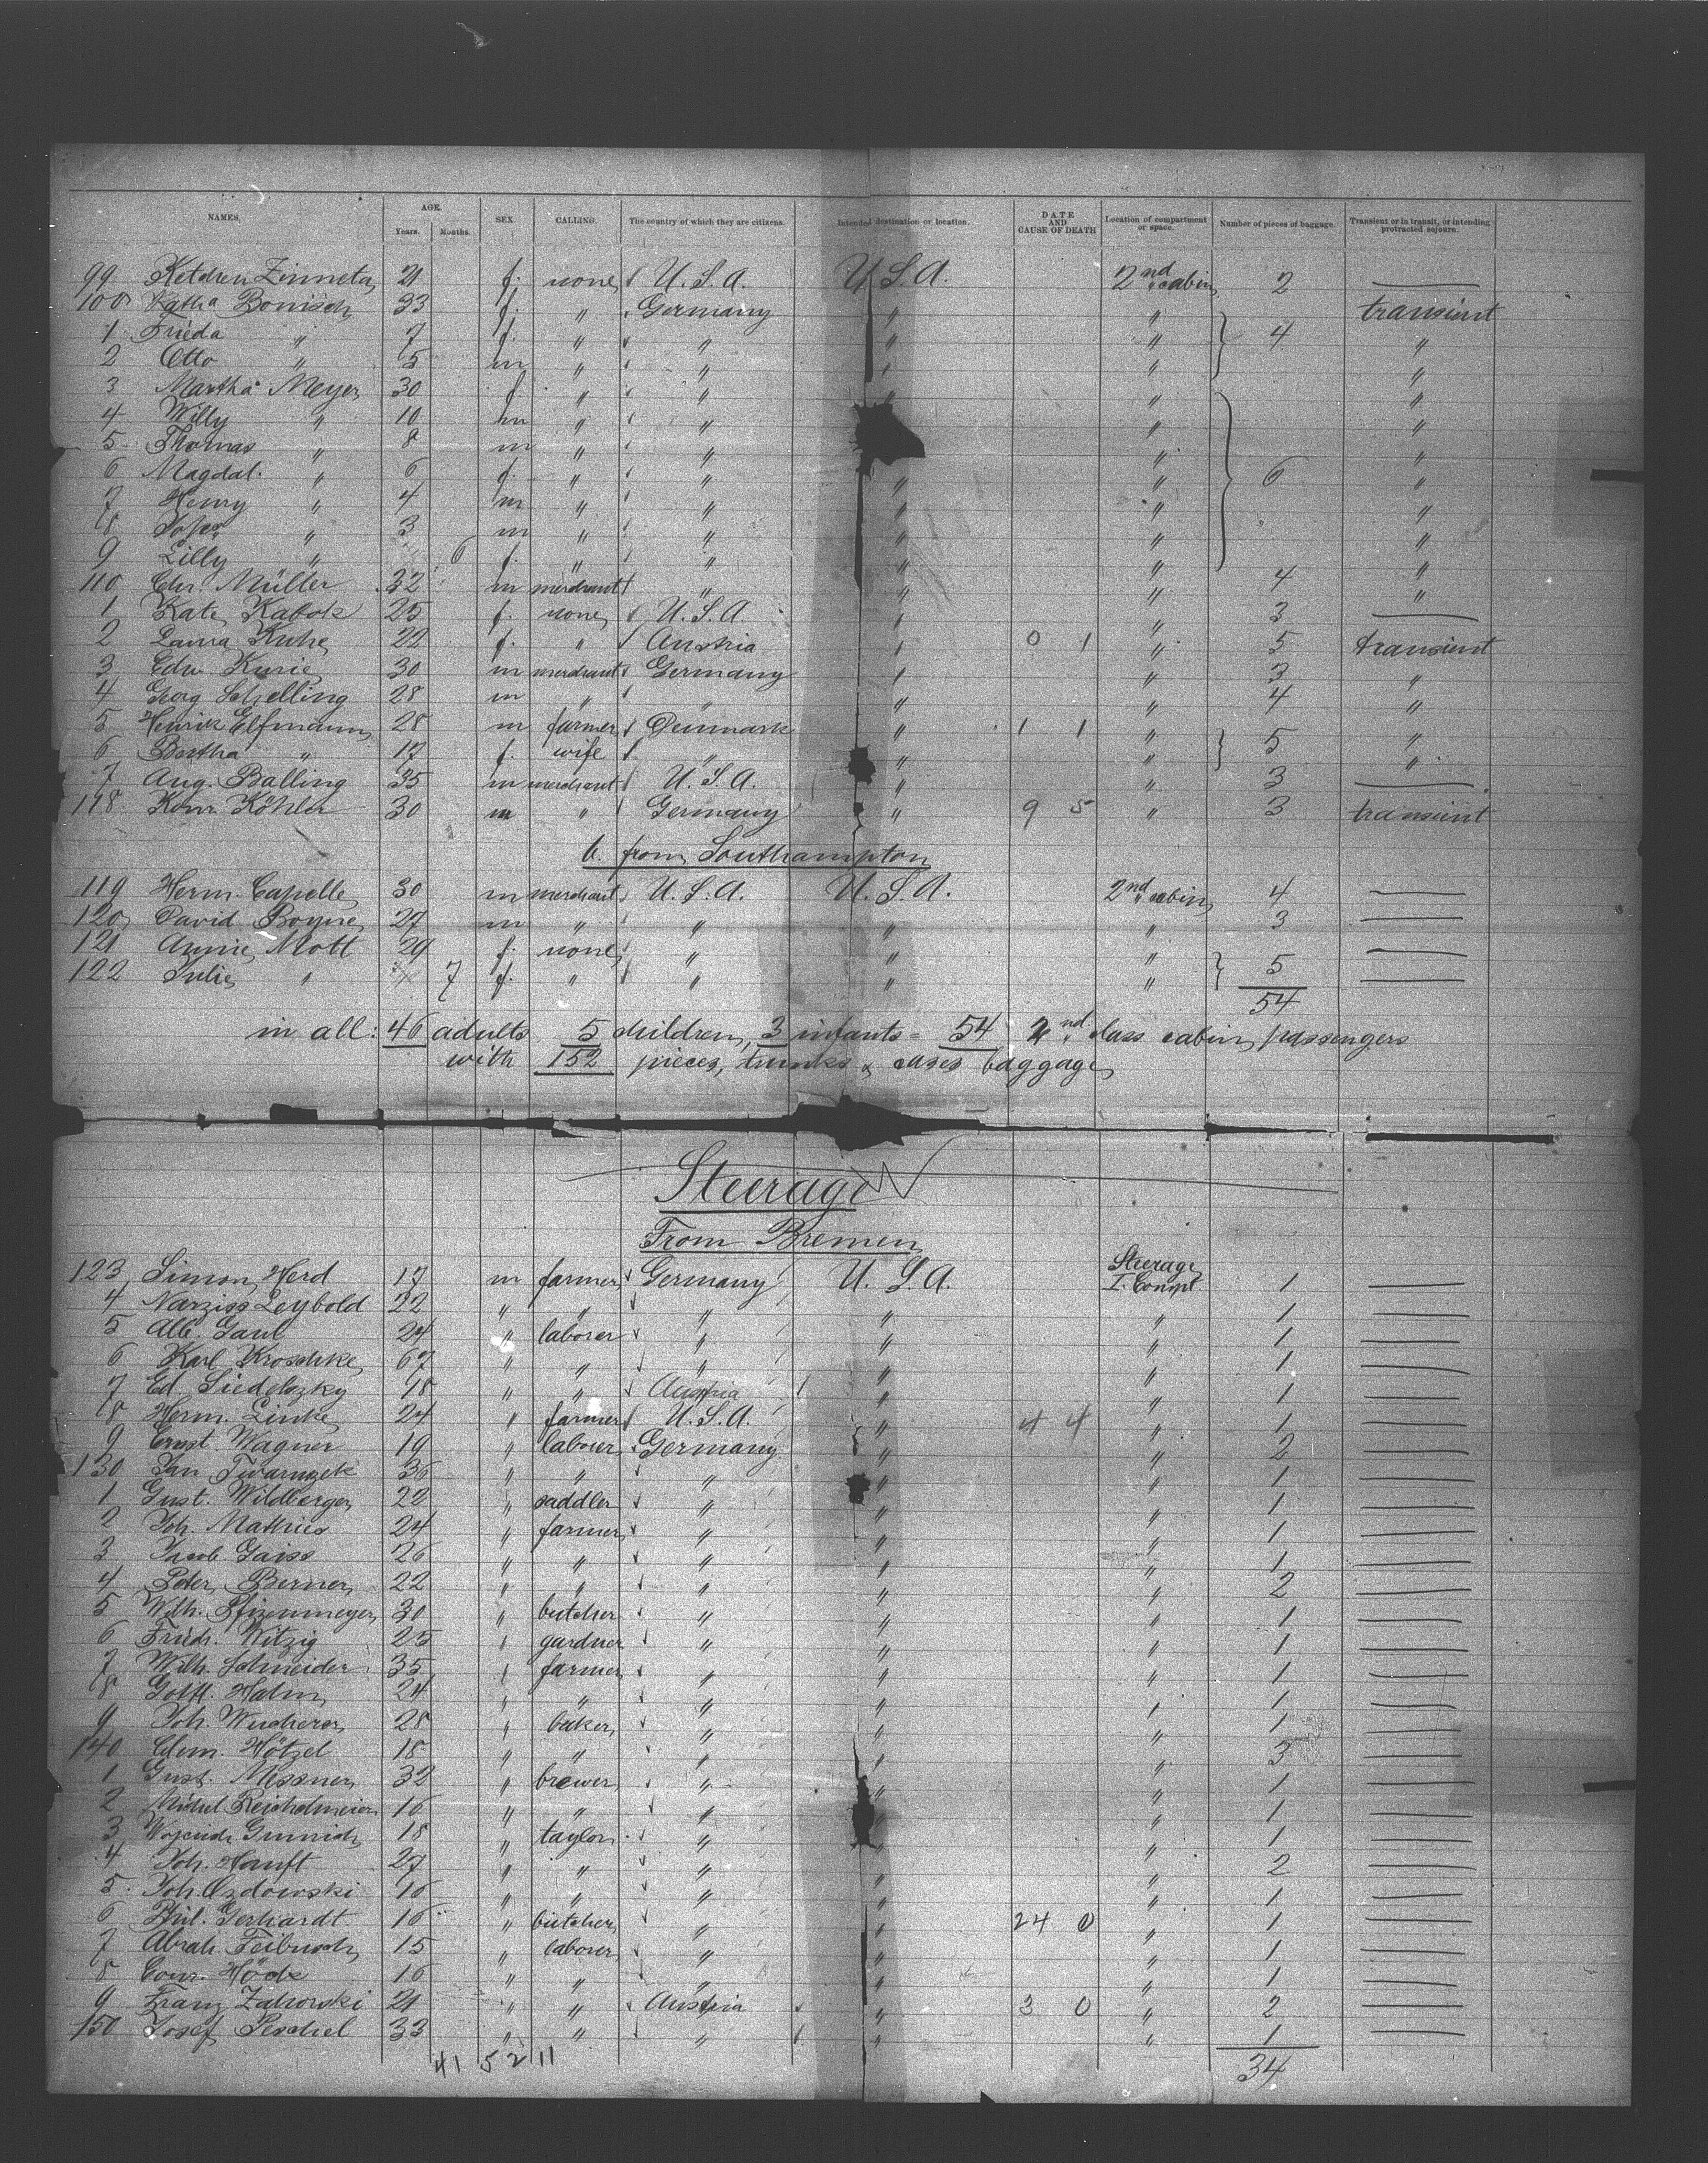 NAMES. AGE. SEX. CALLING. The country of which they are citizens. Intended destination or location. DATE AND CAUSE OF DEATH Location of compartment or space. Number of pieces of baggage. Transient or in transit, or intending protracted sojourn.
Years. Months.
99 Zinneta 21 f. none U.S.A. U.S.A. 2nd cabin 2 —
100 Katha Bonisch 33 f. " Germany " " transient
1 Frieda " 7 f. " " " " 4 "
2 Otto " 5 m " " " " "
3 Martha Meyer 30 f. " " " " "
4 Willy " 10 m " " " "
5 Thomas " 8 m " " " "
6 Magdal. " 6 f. " " " " 6 "
7 Henry " 4 m " " " " "
8 " 3 m " " " " "
9 Lilly " 6 f. " " " " "
110 Chr. Müller 32 m merchant " " " 4 "
1 Kate Kabok 25 f. none U.S.A. " " 3 —
2 Laura Kuhe 22 f. " Austria " 0 1 " 5 transient
3 Edw. Kurie 30 m merchant Germany " " 3 "
4 Georg Schelling 28 m " " " " 4 "
5 Henrik Elfmann 28 m farmer Denmark " 1 1 " 5 "
6 Bertha " 17 f. wife " " " "
7 Aug. Balling 35 m merchant U.S.A. " " 3 —
118 Konr. Köhler 30 m " Germany " 9 5 " 3 transient
b. from Southampton
119 Herm. Capelle 30 m merchant U.S.A. U.S.A. 2nd cabin 4 —
120 David Boyne 27 m " " " " 3 —
121 Annie Mott 29 f. none " " " —
122 Julie " 7 f. " " " " 5 —
54
in all: 46 adults 5 children, 3 infants = 54 2nd class cabin passengers
with 152 pieces, trunks & cases baggage
Steerage
From Bremen
123 Simon Herd 17 m farmer Germany U.S.A. Steerage I. Compt 1 —
4 Narziss Leybold 22 " " " " " 1 —
5 Alb. Gaul 24 " laborer " " " 1 —
6 Karl Kroschke 67 " " " " " 1 —
7 Ed. Siedelszky 18 " " Austria " " 1 —
8 Herm. Linke 24 " farmer U.S.A. " 4 4 " 1 —
9 Ernst Wagner 19 " laborer Germany " " 2 —
130 Jan 36 " " " " " 1 —
1 Gust. Wildberger 22 " saddler " " " 1 —
2 Joh. Mathies 24 " farmer " " " 1 —
3 Jacob Gaiss 26 " " " " " 1 —
4 Peter Berner 22 " " " " " 2 —
5 Wilh. Pfizenmeyer 30 " butcher " " " 1 —
6 Friedr. Witzig 25 " gardner " " " 1 —
7 Wilh. Schneider 35 " farmer " " " 1 —
8 Gottl. Hahn 24 " " " " " 1 —
9 Joh. Wucherer 28 " baker " " " 1 —
140 Clem. Hötzel 18 " " " " " 3 —
1 Gust. Messner 32 " brewer " " " 1 —
2 Michel Reichelmeier 16 " " " " " 1 —
3 18 " taylor " " " 1 —
4 Joh. Hanft 27 " " " " " 2 —
5 Joh. Ozdowski 16 " " " " " 1 —
6 Phil. Gerhardt 16 " butcher " " 24 0 " 1 —
7 Abrah. Feibusch 15 " laborer " " " 1 —
8 Conr. Höck 16 " " " " " 1 —
9 Franz Zahorski 21 " " Austria " 3 0 " 2 —
150 Josef Peschel 33 " " " " " 1 —
41 52 11 34